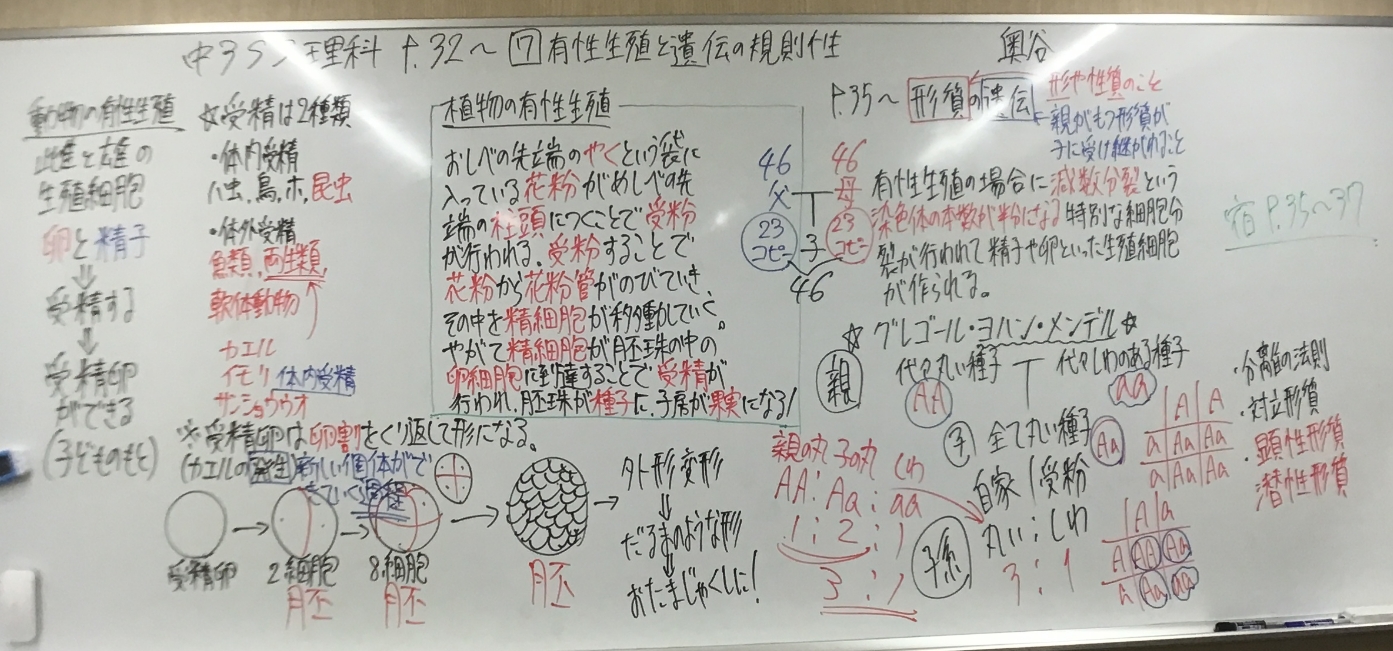 中3SS理科 P.32～ 7 有性生殖と遺伝の規則性
奥谷
動物の有性生殖
雌と雄の
生殖細胞
卵と精子
⇓
受精する
⇓
受精卵
ができる
(子どものもと)
☆受精は2種類
・体内受精
ハ虫、鳥、ホ、昆虫
・体外受精
魚類、両生類、
軟体動物
カエル
イモリ 体内受精
サンショウウオ
※受精卵は卵割をくり返して形になる。
(カエルの発生)新しい個体がで
きていく過程
受精卵
2細胞
胚
8細胞
胚
胚
外形変形
⇓
だるまのような形
⇓
おたまじゃくしに!
植物の有性生殖
おしべの先端のやくという袋に
入っている花粉がめしべの先
端の柱頭につくことで受粉
が行われる。受粉することで
花粉から花粉管がのびていき、
その中を精細胞が移動していく。
やがて精細胞が胚珠の中の
卵細胞に到達することで受精が
行われ、胚珠が種子に、子房が果実になる!
P.35～ 形質の遺伝
形や性質のこと
親がもつ形質が
子に受け継がれること
46 46
父 母
23 23
コピー 子 コピー
46
有性生殖の場合に減数分裂という
染色体の本数が半分になる特別な細胞分
裂が行われて精子や卵といった生殖細胞
が作られる。
宿 P.35～37
☆グレゴール・ヨハン・メンデル☆
親 代々丸い種子 代々しわのある種子
AA aa
子 全て丸い種子 Aa
自家受粉
孫 丸い：しわ
3：1
親の丸 子の丸 しわ
AA：Aa：aa
1：2：1
3：1
A A
a Aa Aa
a Aa Aa
A a
A AA Aa
a Aa aa
・分離の法則
・対立形質
・顕性形質
潜性形質